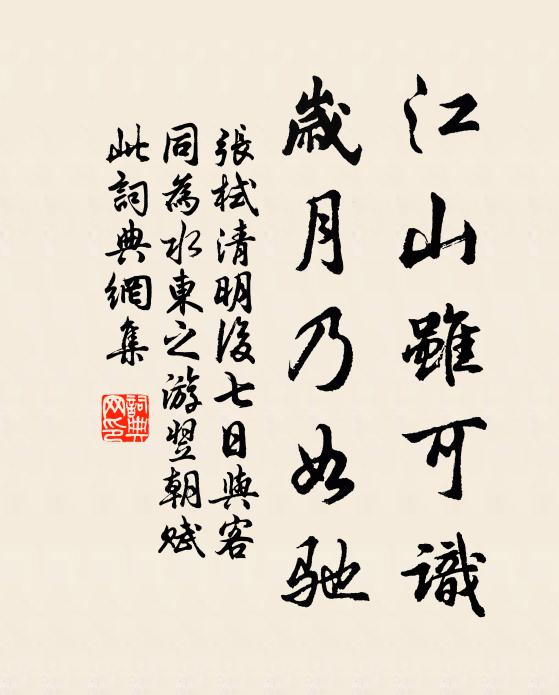 江山雖可識
歲月乃如馳
張栻清明後七日與客
同為水東之游翌朝賦
此詞典網集
詞典
网印